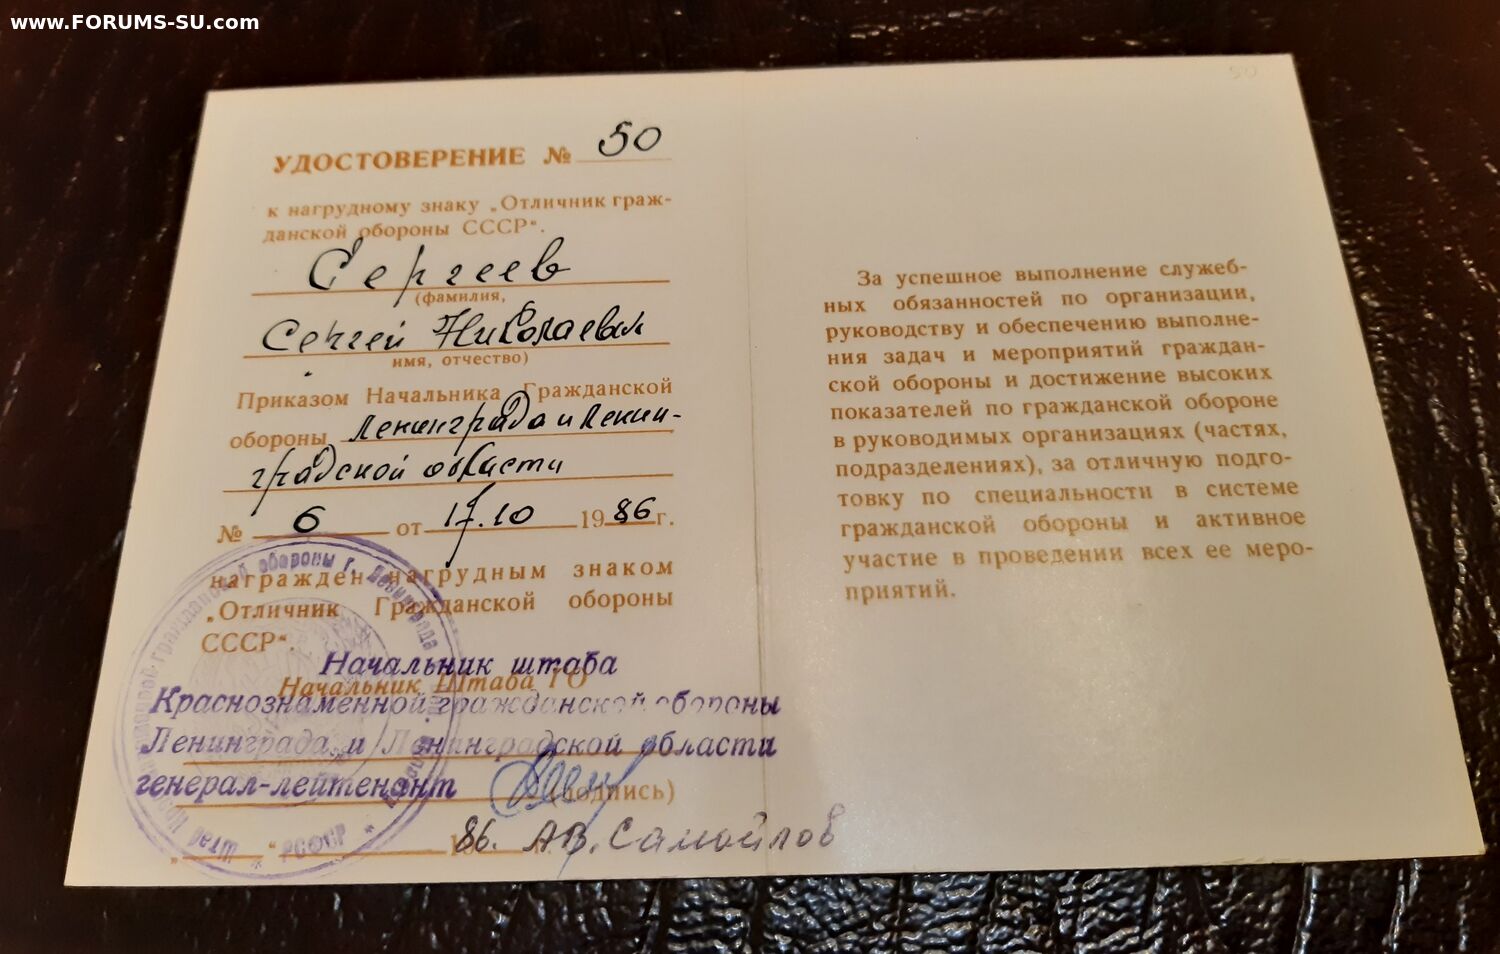 www.FORUMS-SU.com
50
УДОСТОВЕРЕНИЕ № 50
к нагрудному знаку „Отличник граж-
данской обороны СССР“.
Сергеев
(фамилия,
Сергей Николаевич
имя, отчество)
Приказом Начальника Гражданской
обороны Ленинграда и Ленин-
градской области
№ 6 от 17.10 1986г.
награжден нагрудным знаком
„Отличник Гражданской обороны
СССР“.
Начальник штаба
Начальник Штаба ГО
Краснознаменной гражданской обороны
Ленинграда и Ленинградской области
генерал-лейтенант (подпись)
86. А.В. Самойлов
обороны г. Ленинграда
Штаб
РСФСР
За успешное выполнение служеб-
ных обязанностей по организации,
руководству и обеспечению выполне-
ния задач и мероприятий граждан-
ской обороны и достижение высоких
показателей по гражданской обороне
в руководимых организациях (частях,
подразделениях), за отличную подго-
товку по специальности в системе
гражданской обороны и активное
участие в проведении всех ее меро-
приятий.